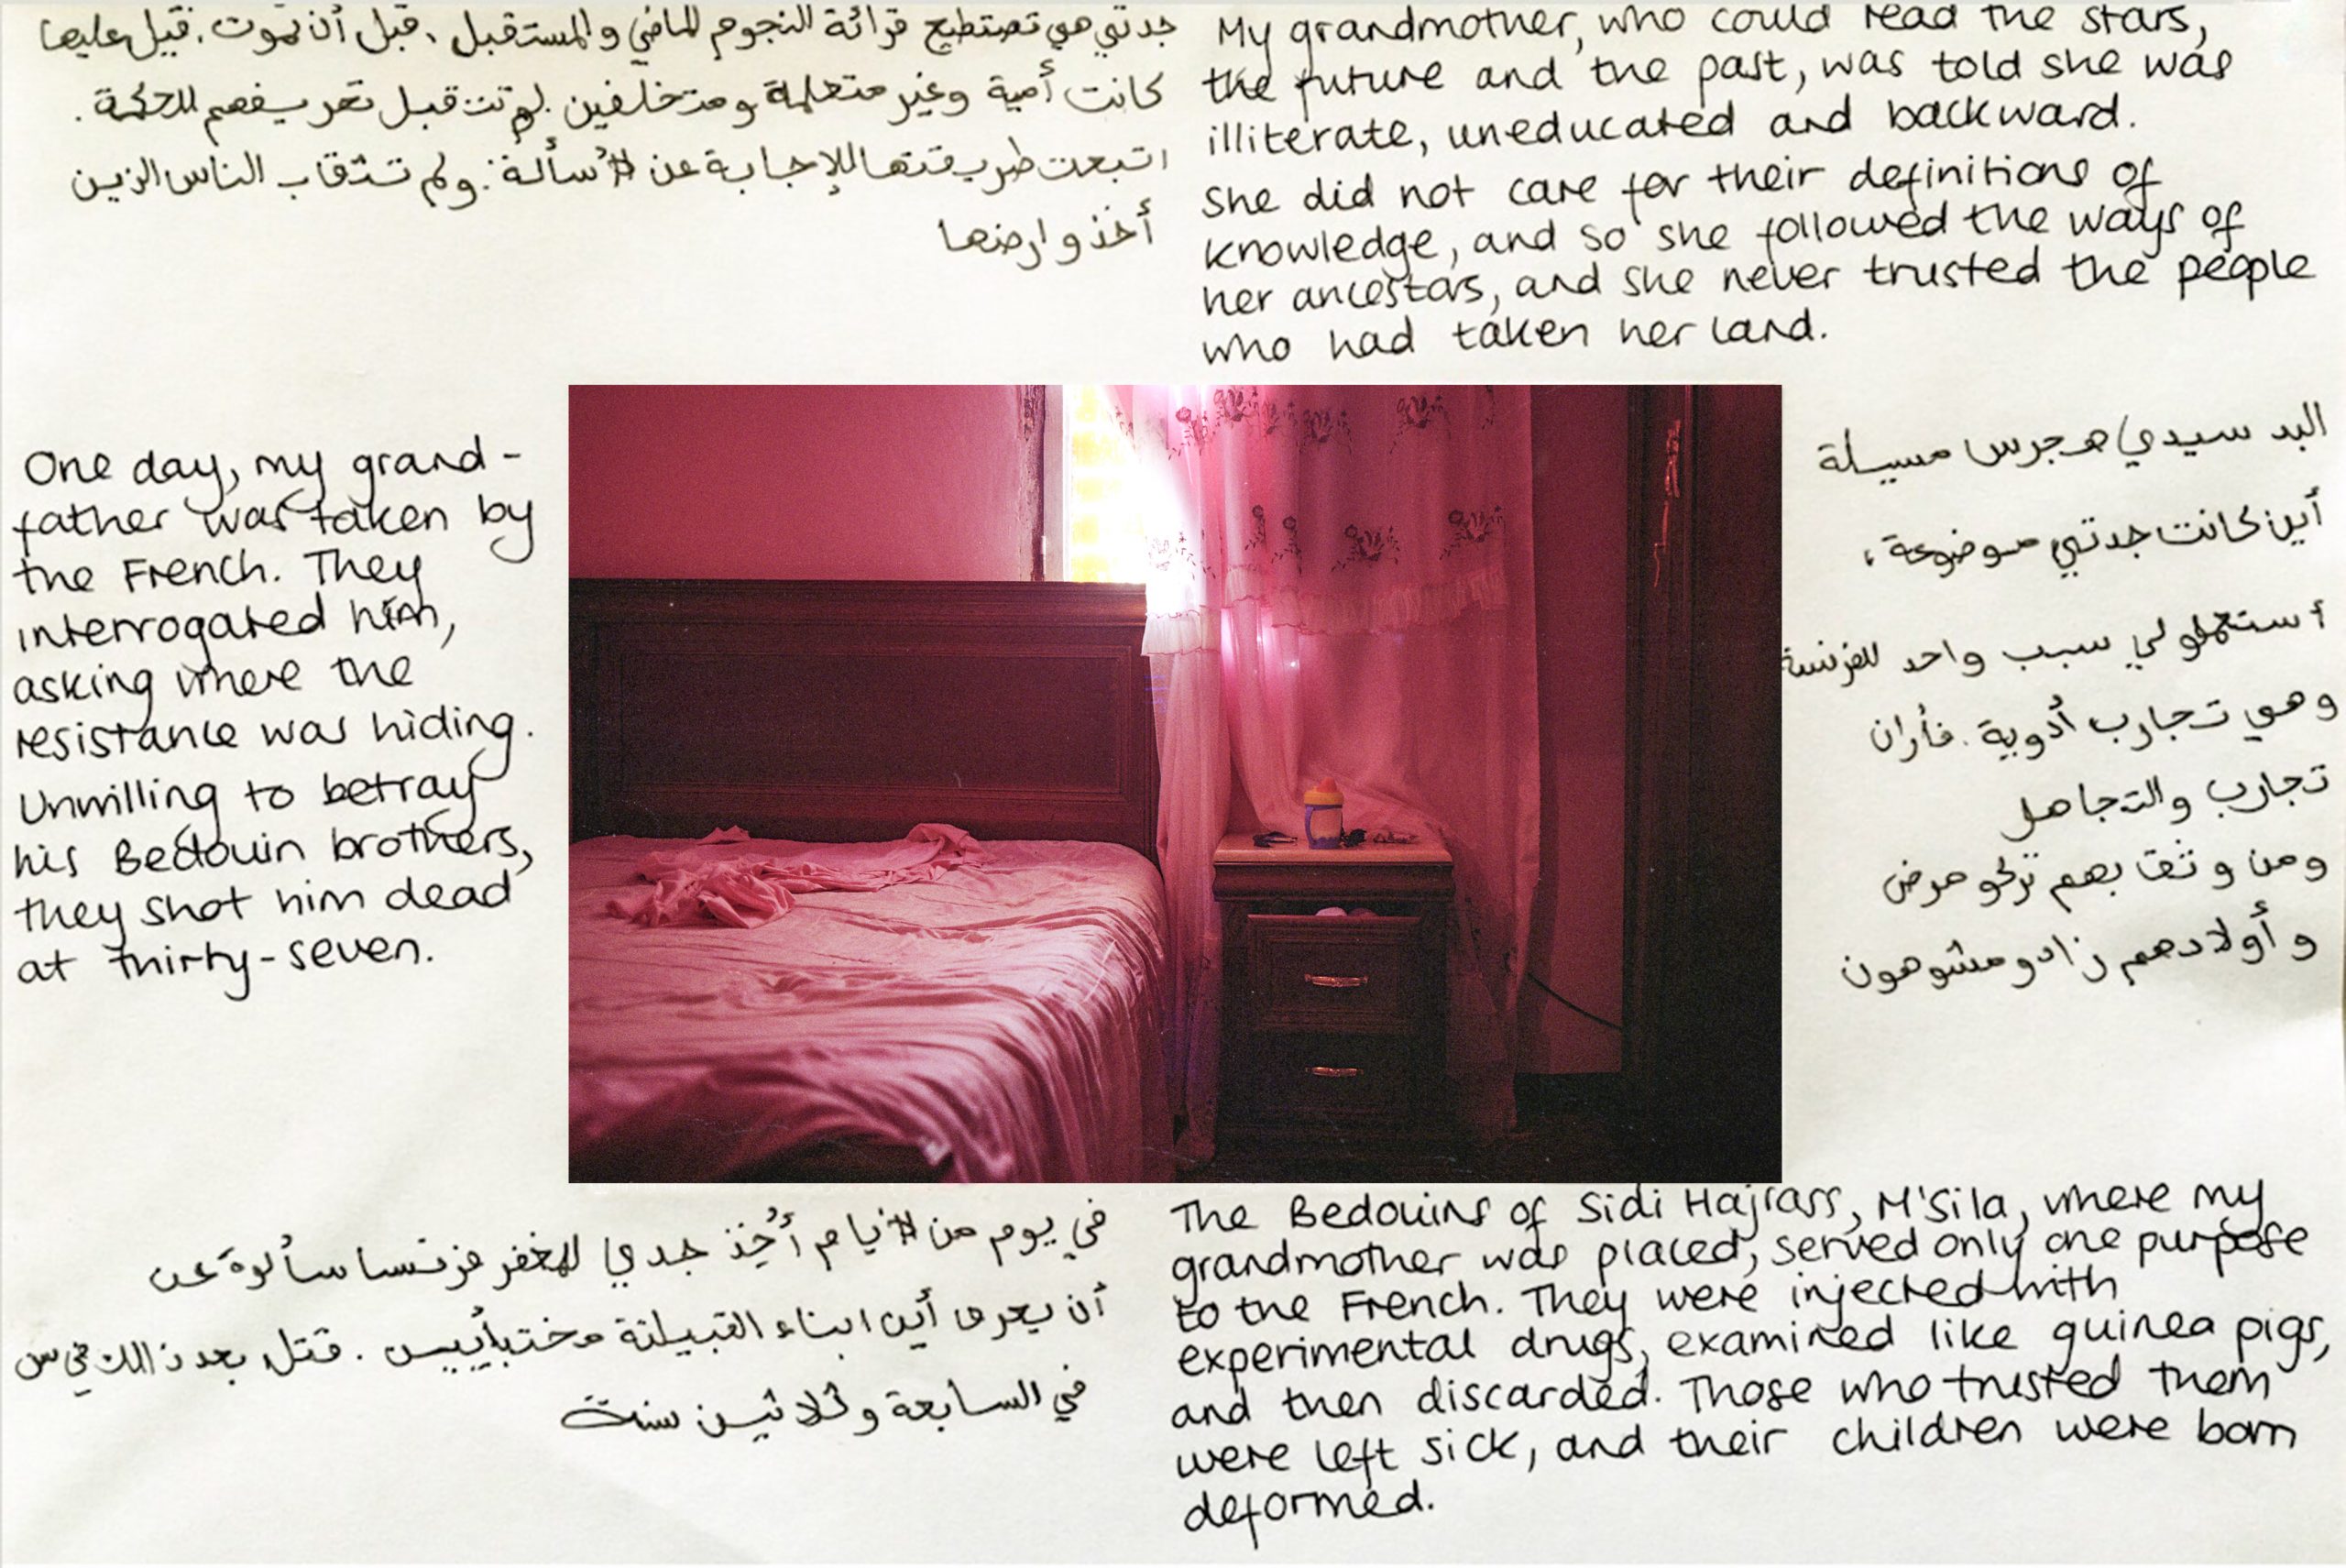 جدتي هي تصتطيع قرائة النجوم الماضي والمستقبل ، قبل أن تموت . قيل عليها
كانت أمية وغير متعلمة ومتخلفين . لم تتقبل تعريفهم للحكمة .
اتبعت طريقتها للإجابة عن الأسألة . ولم تتقاب الناس الزين
أخذو ارضها
My grandmother, who could read the stars,
the future and the past, was told she was
illiterate, uneducated and backward.
She did not care for their definitions of
knowledge, and so she followed the ways of
her ancestors, and she never trusted the people
who had taken her land.
One day, my grand-
father was taken by
the French. They
interrogated him,
asking where the
resistance was hiding.
Unwilling to betray
his Bedouin brothers,
they shot him dead
at thirty-seven.
البد سيدي هجرس مسيلة
أين كانت جدتي موضوعة ،
أستعملو لي سبب واحد للفرنسة
وهي تجارب أدوية . فأران
تجارب والتجاهل
ومن وتقا بهم تركو مرض
وأولادهم زادو مشوهون
في يوم من الأيام أُخِذ جدي للمخفر فرنسا سألوة عن
أن يعرى أين ابناء القبيلة مختبأييس . قتل بعد ذالك في س
في السابعة وثلاثين سنة
The Bedouins of Sidi Hajrass, M'Sila, where my
grandmother was placed, served only one purpose
to the French. They were injected with
experimental drugs, examined like guinea pigs,
and then discarded. Those who trusted them
were left sick, and their children were born
deformed.